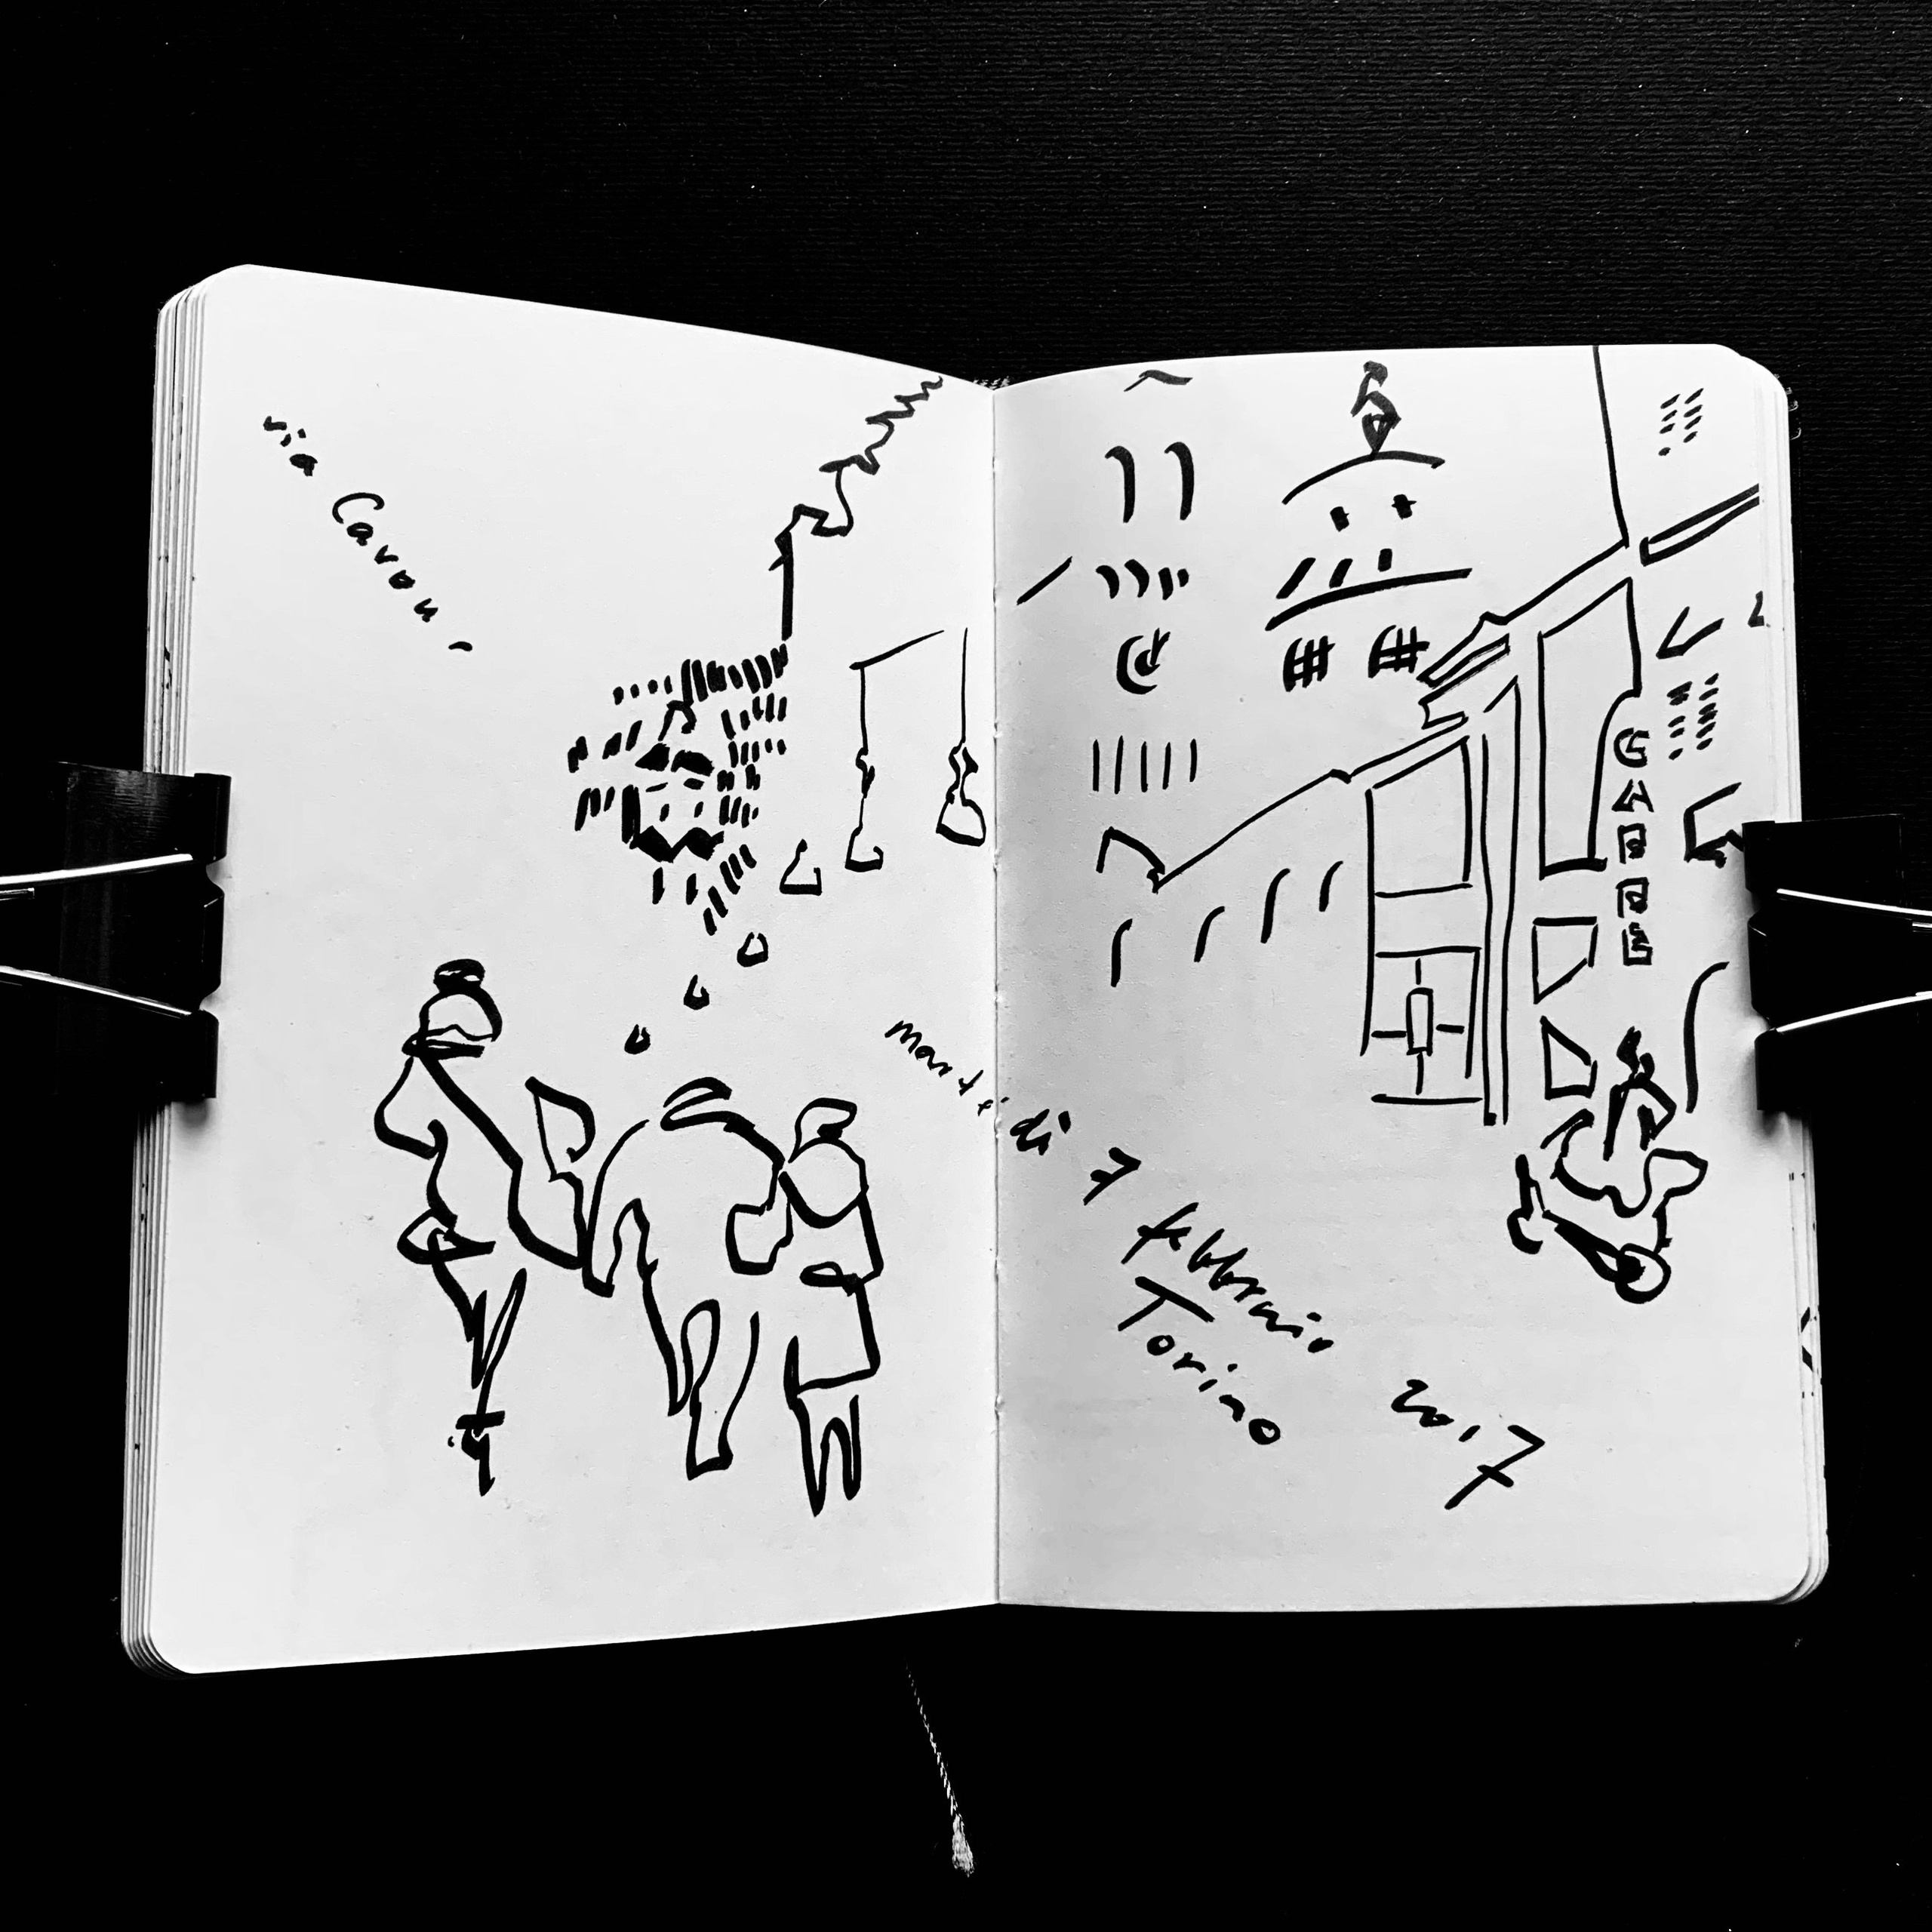 via Cavour
CAFFE
martedì 7 febbraio 2017
Torino